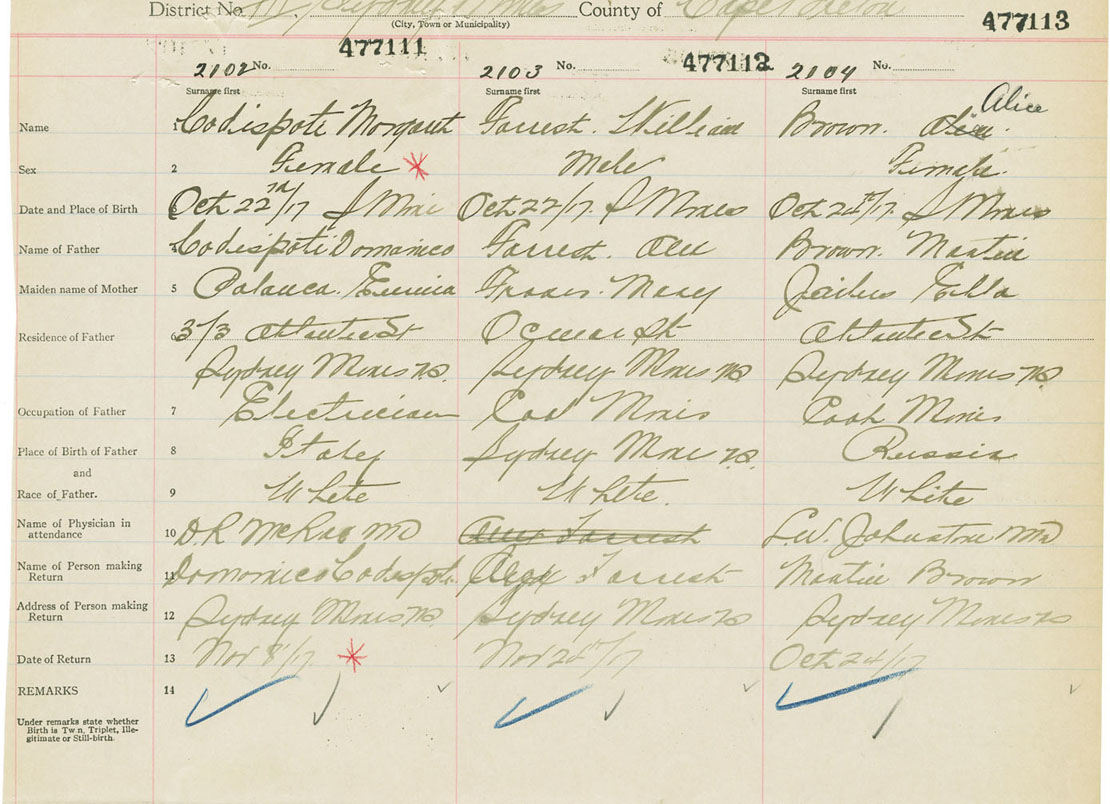 District No. Sydney Mines County of Cape Breton
(City, Town or Municipality)
477111 477112 477113
2102 No. 2103 No. 2104 No.
Surname first Surname first Surname first
Alice
Name 1 Codispoti Morgaret Forrest. William Brown.
Sex 2 Female Male Female.
Date and Place of Birth 3 Oct 22nd/17 S Mines Oct 22/17. S Mines Oct 24th/17. S Mines
Name of Father 4 Codispoti Domanico Forrest. Alex Brown. Martin
Maiden name of Mother 5 Mary Ella
Residence of Father 6 313 Atlantic St Ocean St Atlantic St
Sydney Mines NS. Sydney Mines NS Sydney Mines NS.
Occupation of Father 7 Electrician Coal Mines Coal Mines
Place of Birth of Father 8 Italy Sydney Mines NS. Russia
and
Race of Father. 9 White White. White
Name of Physician in
attendance 10 D.R. McRae MD Alex Forrest L.W. Johnstone MD
Name of Person making
Return 11 Domonico Codispoti Alex Forrest Martin Brown
Address of Person making
Return 12 Sydney Mines NS. Sydney Mines NS Sydney Mines NS
Date of Return 13 Nov 8/17 Nov 24th/17 Oct 24/17
REMARKS 14
Under remarks state whether
Birth is Twin, Triplet, Ille-
gitimate or Still-birth.